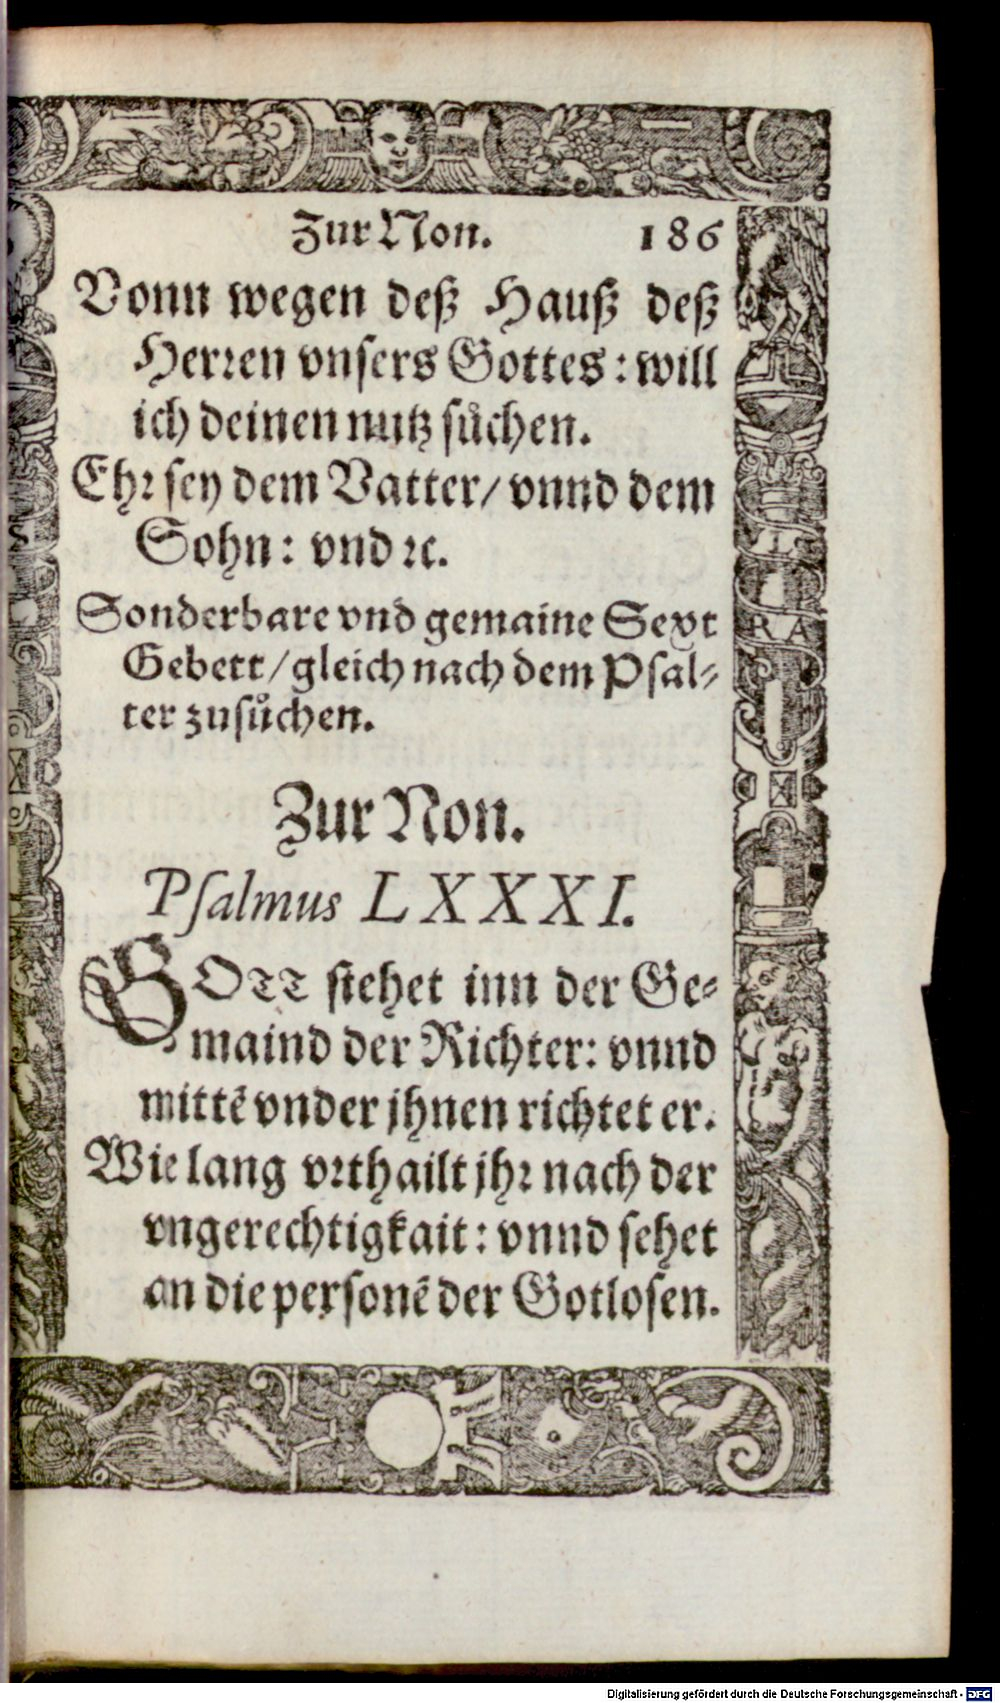 Zur Non. 186
Vonn wegen deß Hauß deß
Herꝛen vnsers Gottes: will
ich deinen nutz sůchen.
Ehꝛ sey dem Vatter/ vnnd dem
Sohn: vnd ꝛc.
Sonderbare vnd gemaine Sext
Gebett/ gleich nach dem Psal-
ter zusůchen.
Zur Non.
Psalmus LXXXI.
GOTT stehet inn der Ge-
maind der Richter: vnnd
mittē vnder jhnen richtet er.
Wie lang vꝛthailt jhꝛ nach der
vngerechtigkait: vnnd sehet
an die personē der Gotlosen.
RA
Digitalisierung gefördert durch die Deutsche Forschungsgemeinschaft - DFG